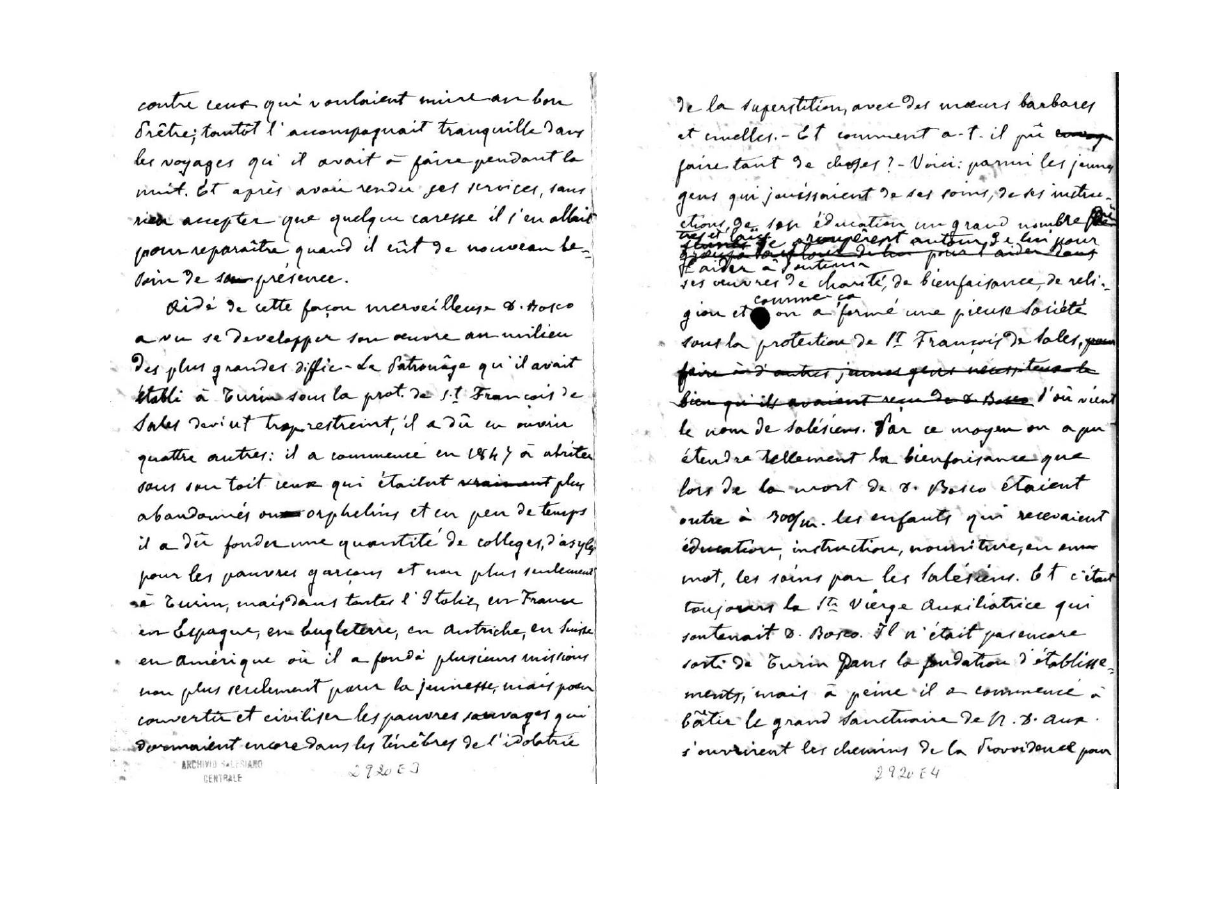 contre ceux qui voulaient nuire au bon
Prêtre; tantôt l'accompagnait tranquille dans
les voyages qu'il avait à faire pendant la
nuit. Et après avoir rendu ses services, sans
rien accepter que quelque caresse il s'en allait
pour reparaître quand il eût de nouveau be-
soin de sa présence.
Aidé de cette façon merveilleuse D. Bosco
a vu se developper son œuvre au milieu
des plus grandes diffic- Le Patronâge qu'il avait
établi à Turin sous la prot. de S.t François de
Sales devint trop restreint, il a dû en ouvrir
quattre autres: il a commencé en 1847 à abriter
sous son toit ceux qui étaient vraiment plus
abandonnés ou orphelins et en peu de temps
il a dû fonder une quantité de colleges, d'asyles
pour les pauvres garçons et non plus seulement
à Turin, mais dans toutes l'Italie, en France
en Espagne, en Engleterre, en Autriche, en Suisse
en Amérique où il a fondé plusieurs missions
non plus seulement pour la jeunesse, mais pour
convertir et civiliser les pauvres sauvages qui
dormaient encore dans les ténèbres de l'idolatrie
ARCHIVIO SALESIANO
CENTRALE
2920 E3
de la superstition, avec des mœurs barbares
et cruelles.- Et comment a-t-il pû
faire tant de choses? - Voici: parmi les jeunes
gens qui jouissaient de ses soins, de ses instru-
ctions, de son éducation un grand nombre
se groupèrent autour de lui pour
l'aider à soutenir
ses œuvres de charité, de bienfaisance, de reli-
comme ça
gion et on a formé une pieuse Société
sous la protection de S.t François de Sales, pour
faire à d'autres jeunes gens le
bien qu'ils avaient reçu de D. Bosco d'où vient
le nom de Salésiens. Par ce moyen on a pu
étendre tellement la bienfaisance que
lors de la mort de D. Bosco étaient
outre à 300/m. les enfants qui recevaient
éducation, instruction, nourriture, en un
mot, les soins par les Salésiens. Et c'était
toujours la Ste Vierge Auxiliatrice qui
soutenait D. Bosco. Il n'était pas encore
sorti de Turin dans la fondation d'établisse-
ments, mais à peine il a commencé à
bâtir le grand Sanctuaire de N. D. Aux.
s'ouvrirent les chemins de la Providence pour
2920 E4